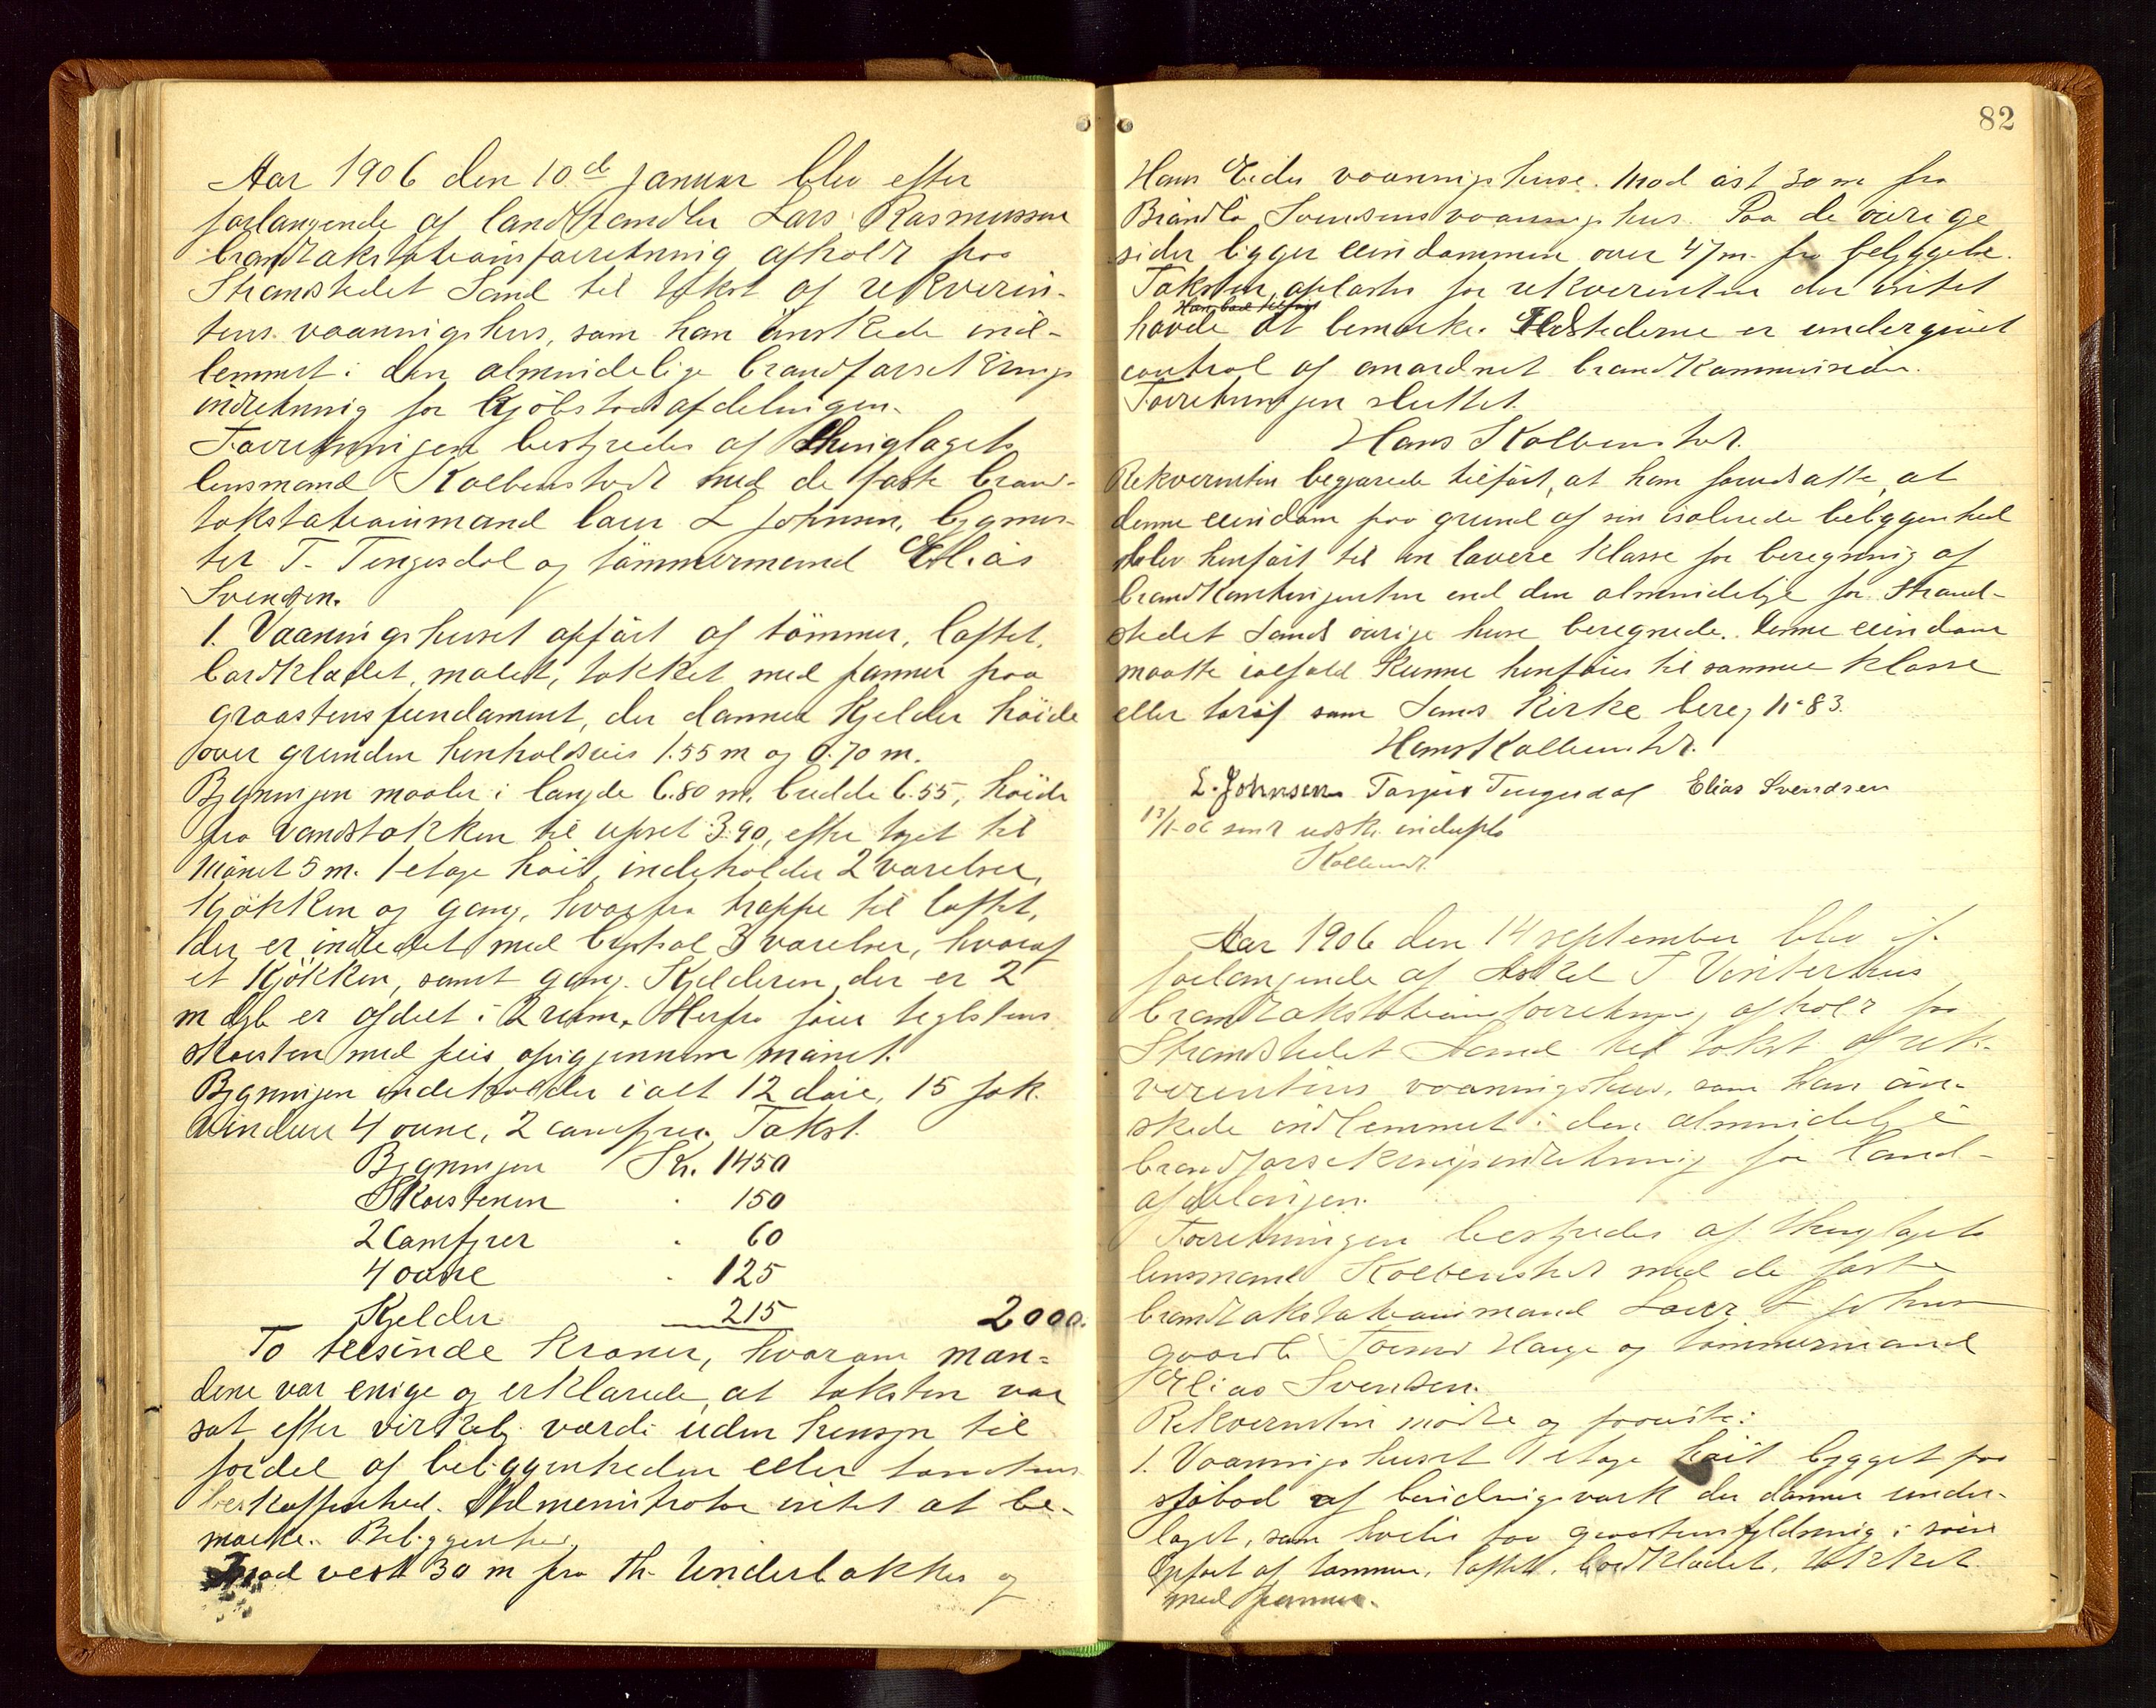 Aar 1906 den 10de januar blev efter
forlangende af landhandler Lars Rasmussen
brandtakstationsforretning afholdt paa
Strandstedet Sand til takst af rekviren-
tens vaaningshus, som han önskede ind-
lemmet i den almindelige brandforsikrings
indretning for Kjöbstadsafdelingen.
Forretningen bestyredes af thinglagets
lensmand Kolbenstvedt med de faste brand-
takstationsmænd L Johnsen, bygmes-
ter T. Tengesdal og tömmermand Elias
Svendsen.
1. Vaaningshuset opfört af tömmer, loftet,
bordklædet, malet, tækket med panner paa
graastensfundament, der danner Kjelder höide
over grunden henholdsvis 1.55 m og 0.70 m.
Bygningen maaler i længde 6.80 m. bredde 6.55, höide
fra vandstokken til upset 3.90, efter taget til
mönet 5 m. 1 etage höit, indeholder 2 værelser,
Kjökken og gang, hvorfra trappe til loftet,
der er indredet med 3 værelser, hvoraf
et Kjökken, samt gang. Kjelderen der er 2
m dyb er afdelt i 2 rum. Herfra förer teglstens
skorsten med peis opigjennem mönet.
Bygningen indeholder i alt 12 döre, 15 fok.
vinduer 4 ovne, 2 comfyrer. Takst.
Bygningen Kr. 1450
Skorstenen " 150
2 Comfyrer " 60
4 ovne " 125
Kjelder 215 2000.
To tusinde Kroner, hvorom mæn-
dene var enige og erklærede, at taksten var
sat efter virkelig værdi uden hensyn til
fordel af beliggenheden eller tomtens
beskaffenhed. Administrator intet at be-
mærke. Beliggenhed
Mod vest 30 m fra Th. Underbakkes og
82
Hans Eides vaaningshuse. Mod öst 30 m fra
Svendsens vaaningshus. Paa de övrige
sider ligger eiendommen over 47 m. fra bebyggelse.
Taksten oplæstes for rekvirenten der intet
Han bad tilfört
havde at bemærke. Ildstederne er undergivet
control af anordnet brandkommission.
Forretningen sluttet.
Hans Kolbenstvedt.
Rekvirenten begjærede tilfört, at han forudsatte, at
denne eiendom paa grund af sin isolerede beliggenhed
blev henfört til en lavere klasse for beregning af
brandkontingenten end den almindelige for Strand-
stedet Sands övrige huse beregnede. Denne eiendom
maatte ialfald kunne henföres til samme klasse
eller tarif som Sands Kirke bereg 11-83.
Hans Kolbenstvedt.
L. Johnsen Torjus Tengesdal Elias Svendsen
13/1-06 sendt udskr. induplo
Kolbenstvedt.
Aar 1906 den 14 september blev ef.
forlangende af Askel T Vinterhus
brandtakstationsforretning afholdt paa
Strandstedet Sand til takst af rek-
virentens vaaningshus, som han ön-
skede indlemmet i den almindelige
brandforsikringsindretning for land-
afdelingen.
Forretningen bestyredes af thinglagets
lensmand Kolbenstvedt med de faste
brandtakstationsmænd L Johnsen
gaardb. Hauge og tömmermand
Elias Svendsen.
Rekvirenten mödte og paaviste:
1. Vaaningshuset 1 etage höit bygget paa
sjöbod af bindingsværk der danner under-
laget, som hviler paa graastensfyldning i söen
Opfört af tömmer, loftet, bordklædet, tækket
med panner.